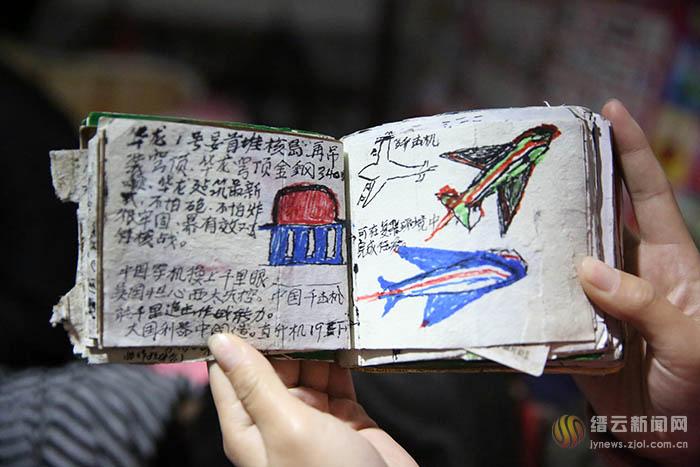 华龙1号妥首堆核岛.再吊
装穹顶.华龙穹顶金钢340
华龙建筑最新
式.不怕砲.不怕炸
很牢固.最有效对
付核战.
中国军机模上千里眼
美国担心西太天控.中国歼击机
千里追击作战能力.
大国利器中国造.直升机19
歼击机
可在复杂环境中
完成任务
缙云新闻网
jynews.zjol.com.cn